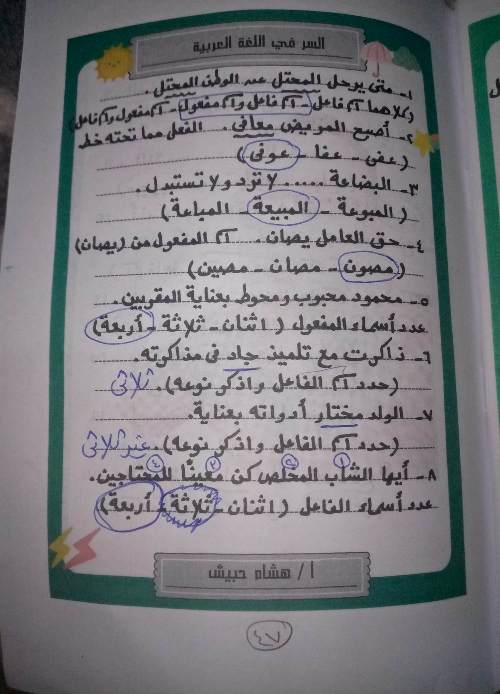 السر في اللغة العربية
١- متى يرحل المحتل عن الوطن المحتل.
(كلاهما اسم فاعل - اسم فاعل واسم مفعول - اسم مفعول واسم فاعل)
٢- أصبح المريض معافى. الفعل مما تحته خط
(عفى - عفا - عوفى)
٣- البضاعة ..... لا ترد ولا تستبدل.
(المبوعة - المبيعة - المباعة)
٤- حق العامل يصان. اسم المفعول من (يصان)
(مصون - مصان - مصين)
٥- محمود محبوب ومحوط بعناية المقربين.
عدد أسماء المفعول (اثنان - ثلاثة - أربعة)
٦- ذاكرت مع تلميذ جاد فى مذاكرته.
(حدد اسم الفاعل واذكر نوعه). ثلاثى
٧- الولد مختار أدواته بعناية.
(حدد اسم الفاعل واذكر نوعه). غير ثلاثى
١ ٢ ٣ ٤
٨- أيها الشاب المخلص كن معينًا للمحتاجين.
عدد أسماء الفاعل (اثنان - ثلاثة - أربعة)
أ / هشام حبيش
٤٧